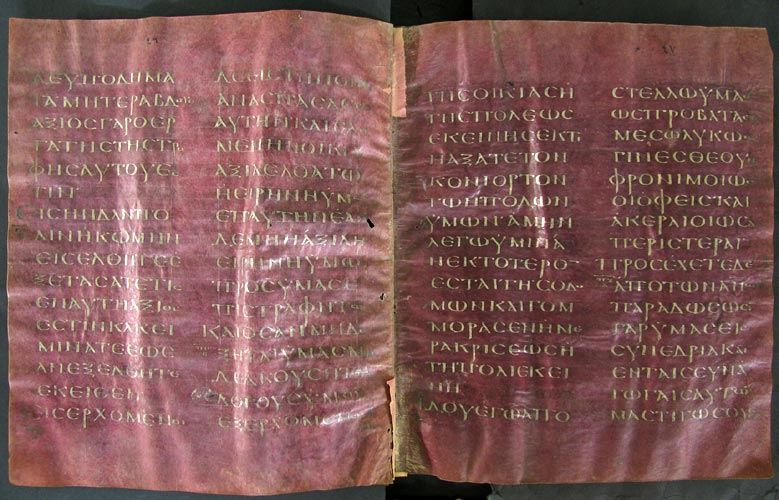 ΔΕΥΠΟΔΗΜΑ
ΤΑΜΗΤΕΡΑΒΔΟΥϹ
ΑΞΙΟϹΓΑΡΟΕΡ
ΓΑΤΗϹΤΗϹΤΡΟ
ΦΗϹΑΥΤΟΥΕϹ
ΤΙΝ
ΕΙϹΗΝΔΑΝΠΟ
ΛΙΝΗΚΩΜΗΝ
ΕΙϹΕΛΘΗΤΕΕ
ΞΕΤΑϹΑΤΕΤΙϹ
ΕΝΑΥΤΗΑΞΙΟϹ
ΕϹΤΙΝΚΑΚΕΙ
ΜΙΝΑΤΕΕΩϹ
ΑΝΕΞΕΛΘΗΤΕ
ΕΚΕΙΘΕΝ
ΕΙϹΕΡΧΟΜΕΝΟΙ
ΔΕΕΙϹΤΗΝΟΙΚΙ
ΑΝΑϹΠΑϹΑϹΘΕ
ΑΥΤΗΝΚΑΙΕΑΝ
ΜΕΝΗΗΟΙΚΙΑ
ΑΞΙΑΕΛΘΑΤΩ
ΗΕΙΡΗΝΗΥΜΩ
ΕΠΑΥΤΗΝΕΑΝ
ΔΕΜΗΗΑΞΙΑΗ
ΕΙΡΗΝΗΥΜΩ
ΠΡΟϹΥΜΑϹΕ
ΠΙϹΤΡΑΦΗΤΩ
ΚΑΙΟϹΑΝΜΗΔΕ
ΞΗΤΑΙΥΜΑϹΜΗ
ΔΕΑΚΟΥϹΗΤΟΥϹ
ΛΟΓΟΥϹΥΜΩ
ΕΞΕΡΧΟΜΕΝΟΙ
ΤΗϹΟΙΚΙΑϹΗ
ΤΗϹΠΟΛΕΩϹ
ΕΚΕΙΝΗϹΕΚΤΙ
ΝΑΞΑΤΕΤΟΝ
ΚΟΝΙΟΡΤΟΝ
ΤΩΝΠΟΔΩΝ
ΥΜΩΝΑΜΗΝ
ΛΕΓΩΥΜΙΝΑ
ΝΕΚΤΟΤΕΡΟ
ΕϹΤΑΙΓΗϹΟΔΟ
ΜΩΝΚΑΙΓΟΜ
ΜΟΡΑϹΕΝΗΜΕ
ΡΑΚΡΙϹΕΩϹΗ
ΤΗΠΟΛΙΕΚΕΙ
ΝΗ
ΙΔΟΥΕΓΩΑΠΟ
ϹΤΕΛΛΩΥΜΑϹ
ΩϹΠΡΟΒΑΤΑ
ΜΕϹΩΛΥΚΩ
ΓΙΝΕϹΘΕΟΥ
ΦΡΟΝΙΜΟΙΩϹ
ΟΙΟΦΕΙϹΚΑΙ
ΑΚΕΡΑΙΟΙΩϹ
ΠΕΡΙϹΤΕΡΑΙ
ΠΡΟϹΕΧΕΤΕΔΕ
ΑΠΟΤΩΝΑΝ
ΠΑΡΑΔΩϹΟΥϹ
ΓΑΡΥΜΑϹΕΙϹ
ϹΥΝΕΔΡΙΑΚΑΙ
ΕΝΤΑΙϹϹΥΝΑ
ΓΩΓΑΙϹΑΥΤΩ
ΜΑϹΤΙΓΩϹΟΥ